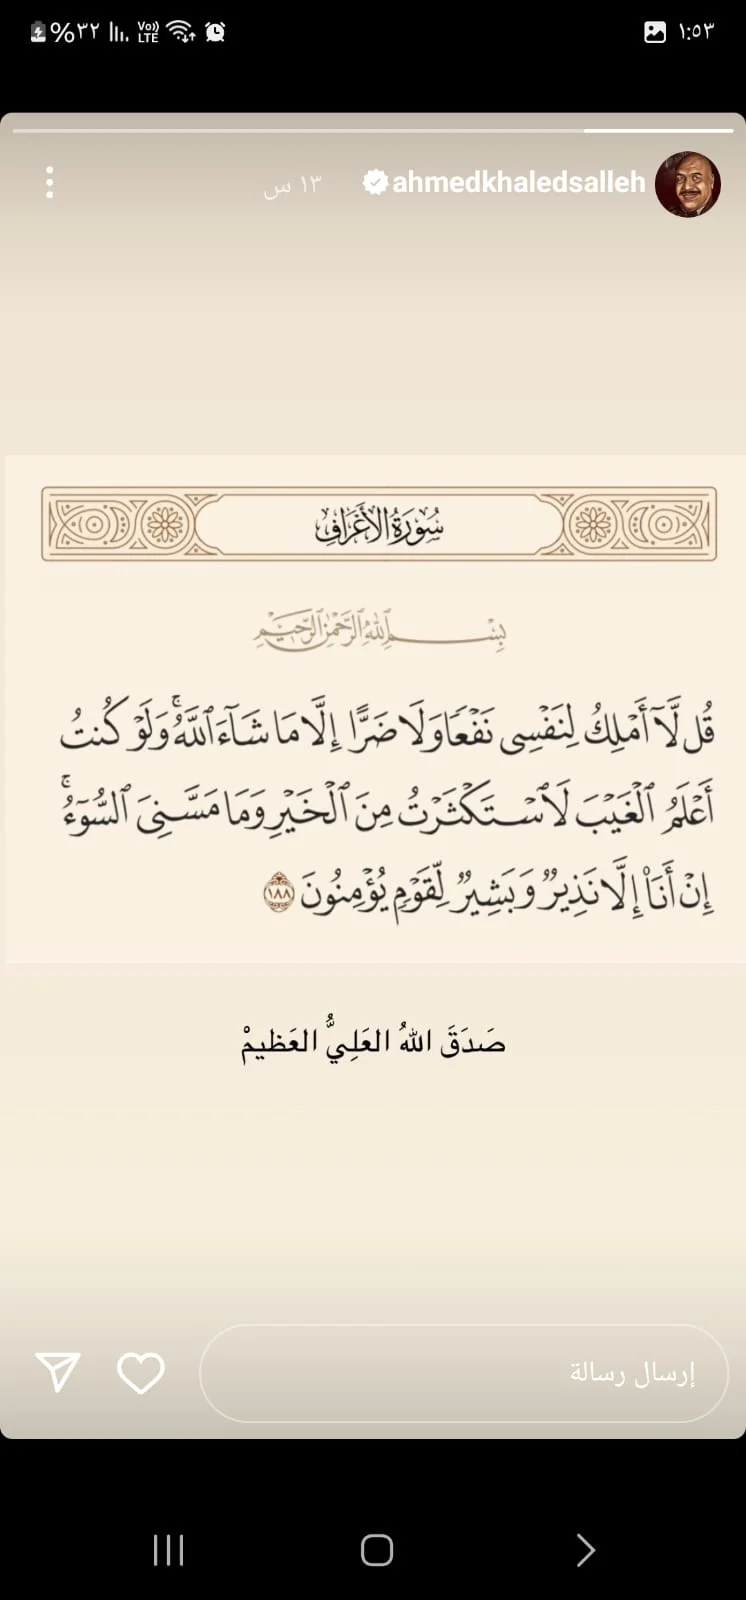 ١:٥٣
%٣٢
Vo))
LTE
ahmedkhaledsalleh
١٣ س
سُورَةُ الأَعْرَافِ
بِسْمِ ٱللَّهِ ٱلرَّحْمَٰنِ ٱلرَّحِيمِ
قُل لَّآ أَمْلِكُ لِنَفْسِى نَفْعًا وَلَا ضَرًّا إِلَّا مَا شَآءَ ٱللَّهُ ۚ وَلَوْ كُنتُ
أَعْلَمُ ٱلْغَيْبَ لَٱسْتَكْثَرْتُ مِنَ ٱلْخَيْرِ وَمَا مَسَّنِىَ ٱلسُّوٓءُ ۚ
إِنْ أَنَا۠ إِلَّا نَذِيرٌ وَبَشِيرٌ لِّقَوْمٍ يُؤْمِنُونَ ١٨٨
صَدَقَ اللهُ العَلِيُّ العَظيمْ
إرسال رسالة